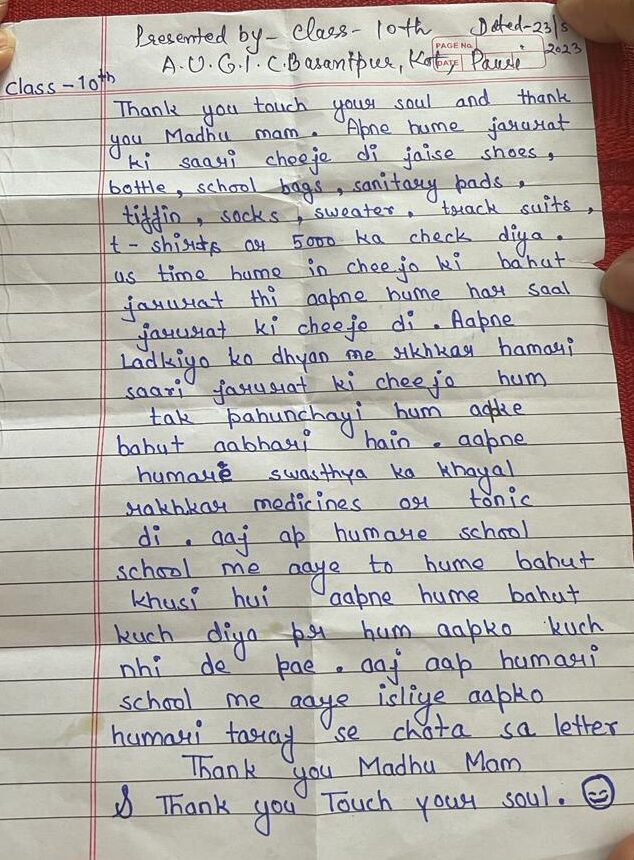 Presented by - Class - 10th Dated - 23/5
2023
PAGE No.
DATE
A.U.G.I.C. Basantpur, Kot, Pauri
Class - 10th
Thank you touch your soul and thank
you Madhu mam. Apne hume jarurat
ki saari cheeje di jaise shoes,
bottle, school bags, sanitary pads,
tiffin, socks, sweater, track suits,
t - shirts or 5000 ka check diya.
us time hume in cheejo ki bahut
jarurat thi aapne hume har saal
jarurat ki cheeje di. Aapne
Ladkiyo ko dhyan me rkhkar hamari
saari jarurat ki cheejo hum
tak pahunchayi hum aapke
bahut aabhari hain. aapne
humare swasthya ka khayal
rakhkar medicines or tonic
di. aaj ap humare school
school me aaye to hume bahut
khusi hui aapne hume bahut
kuch diya pr hum aapko kuch
nhi de pae. aaj aap humari
school me aaye isliye aapko
humari taraf se chota sa letter
Thank you Madhu Mam
& Thank you Touch your soul.